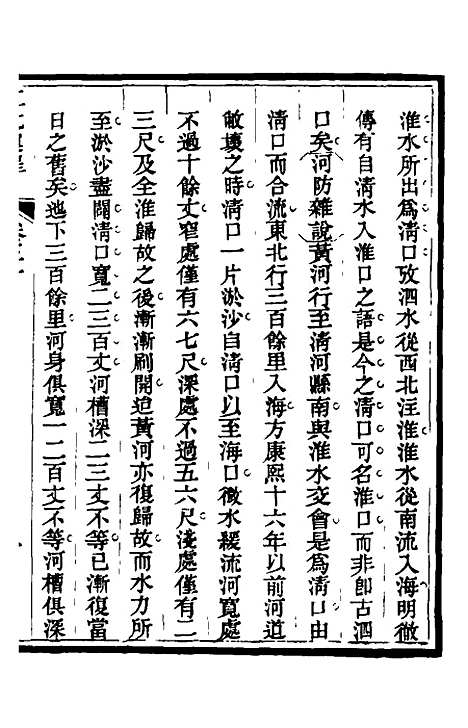 淮水所出為淸口攷泗水從西北注淮淮水從南流入海明徹
傳有自淸水入淮口之語是今之淸口可名淮口而非卽古泗
口矣河防雜說黃河行至淸河縣南與淮水交會是爲淸口由
淸口而合流東北行三百餘里入海方康熙十六年以前河道
敝壞之時淸口一片淤沙自淸口以至海口微水緩流河寬處
不過十餘丈窄處僅有六七尺深處不過五六尺淺處僅有二
三尺及全淮歸故之後漸漸刷開迨黃河亦復歸故而水力所
至淤沙盡闢淸口寬二三百丈河槽深二三丈不等已漸復當
日之舊矣迤下三百餘里河身俱寬一二百丈不等河槽俱深